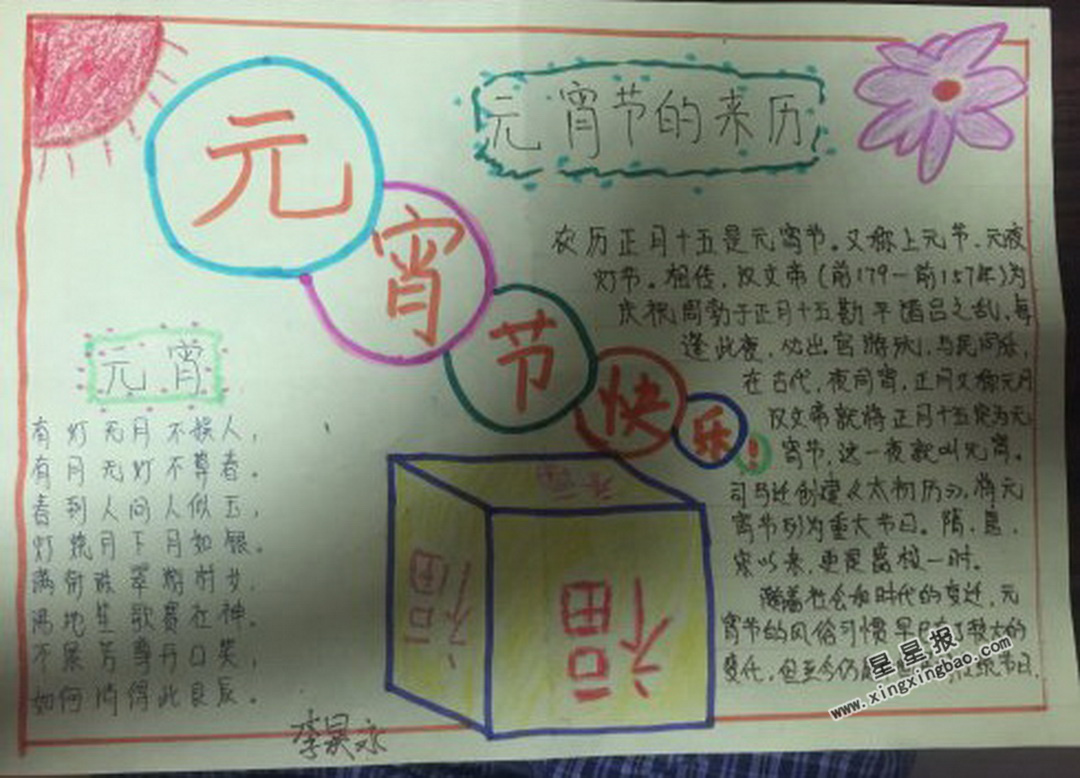 元宵节快乐!
元宵节的来历
农历正月十五是元宵节。又称上元节,元夜
灯节。相传,汉文帝(前179一前157年)为
庆祝周勃于正月十五勘平诸吕之乱,每
逢此夜,必出宫游玩,与民同乐,
在古代,夜同宵,正月又称元月
汉文帝就将正月十五定为元
宵节,这一夜就叫元宵。
司马迁创建《太初历》,将元
宵节列为重大节日。隋,唐,
宋以来,更是盛极一时。
随着社会和时代的变迁,元
宵节的风俗习惯早已有了较大的
变化,但至今仍是
节日.
元宵
有灯无月不娱人,
有月无灯不算春。
春到人间人似玉,
灯烧月下月如银。
满街珠翠
沸地笙歌赛社神。
不展芳尊开口笑,
如何消得此良辰。
福
福
福
李昊
星星报
www.xingxingbao.com